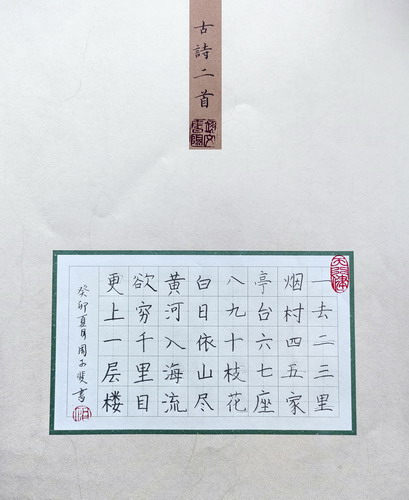 古詩二首
一去二三里
烟村四五家
亭台六七座
八九十枝花
白日依山尽
黄河入海流
欲穷千里目
更上一层楼
癸卯夏月周子斐书